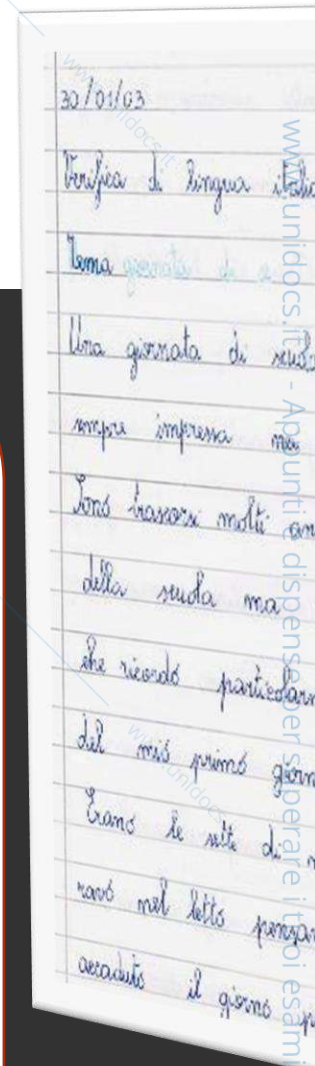 30/01/03
Verifica di lingua italia
Tema giornata di s
Una giornata di scuola
sempre impressa nei
Sono trascorsi molti an
della scuola ma
che ricordo particolarm
del mio primo giorn
Erano le sette di m
ravo nel letto pensan
accaduto il giorno p
www.unidocs.it - Appunti e dispense per superare i tuoi esami
www.unidocs.it
www.unidocs